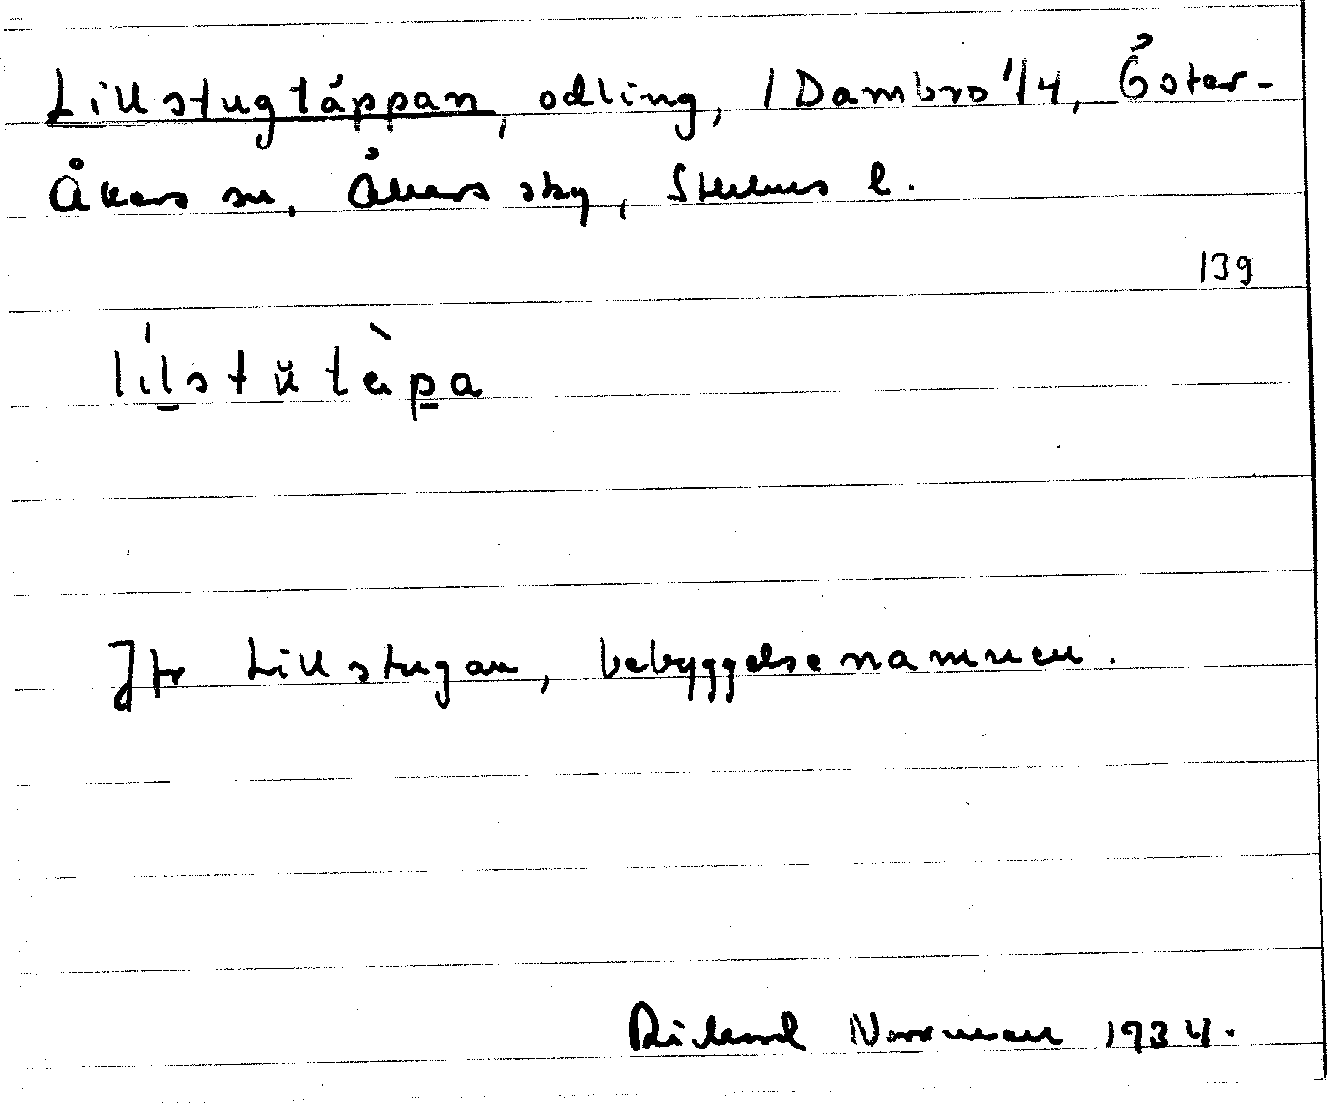 Lillstugtäppan, odling, 1 Dambro 1/4, Öster-
Åkers sn, Åkers sky, Sthlms l.
139
li̍l̠stŭtɛ̀p̠a
Jfr Lillstugan, bebyggelsenamnen.
Rickard Norrman 1934.